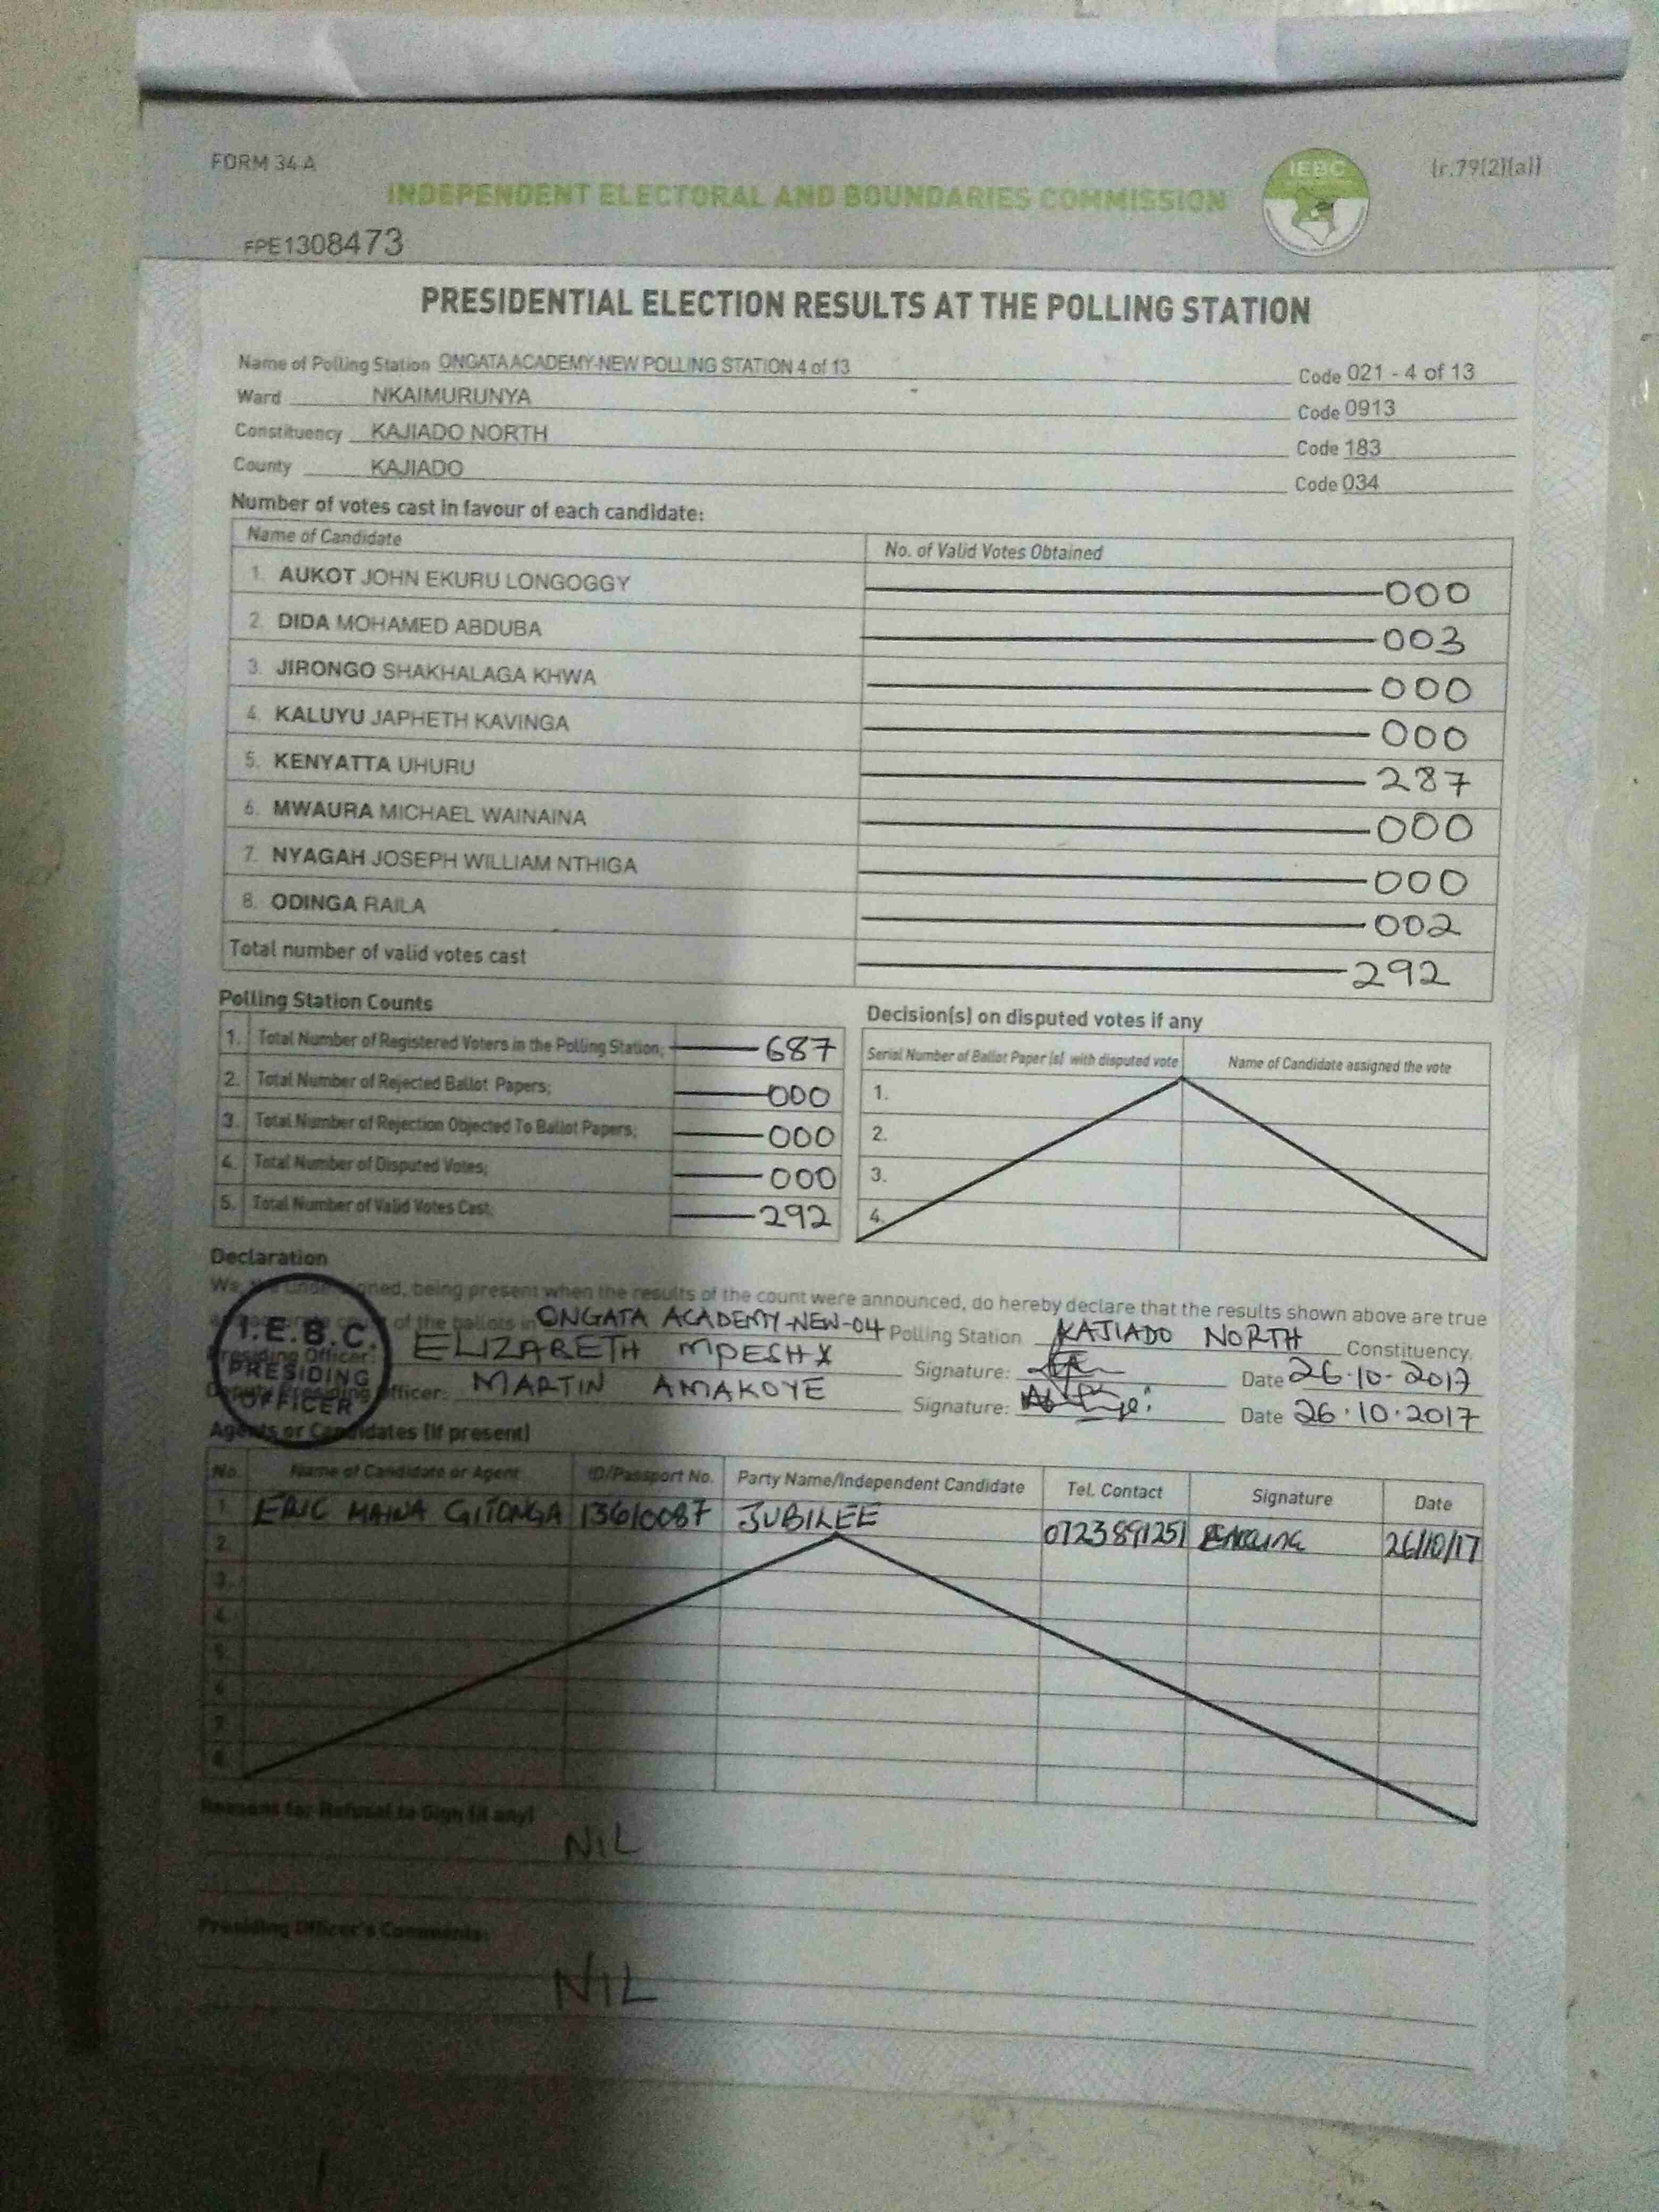 FORM 34 A
IEBC
(r.79(2)(a))
INDEPENDENT ELECTORAL AND BOUNDARIES COMMISSION
FPE1308473
PRESIDENTIAL ELECTION RESULTS AT THE POLLING STATION
Name of Polling Station ONGATA ACADEMY-NEW POLLING STATION 4 of 13 Code 021 - 4 of 13
Ward NKAIMURUNYA Code 0913
Constituency KAJIADO NORTH Code 183
County KAJIADO Code 034
Number of votes cast in favour of each candidate:
Name of Candidate No. of Valid Votes Obtained
1. AUKOT JOHN EKURU LONGOGGY 000
2. DIDA MOHAMED ABDUBA 003
3. JIRONGO SHAKHALAGA KHWA 000
4. KALUYU JAPHETH KAVINGA 000
5. KENYATTA UHURU 287
6. MWAURA MICHAEL WAINAINA 000
7. NYAGAH JOSEPH WILLIAM NTHIGA 000
8. ODINGA RAILA 002
Total number of valid votes cast 292
Polling Station Counts
1. Total Number of Registered Voters in the Polling Station; 687
2. Total Number of Rejected Ballot Papers; 000
3. Total Number of Rejection Objected To Ballot Papers; 000
4. Total Number of Disputed Votes; 000
5. Total Number of Valid Votes Cast; 292
Decision(s) on disputed votes if any
Serial Number of Ballot Paper (s) with disputed vote Name of Candidate assigned the vote
1.
2.
3.
4.
Declaration
We, the undersigned, being present when the results of the count were announced, do hereby declare that the results shown above are true
of the ballots in ONGATA ACADEMY-NEW-04 Polling Station KAJIADO NORTH Constituency.
Presiding Officer: ELIZABETH Signature: Date 26.10.2017
Deputy Presiding Officer: MARTIN AMAKOYE Signature: Date 26.10.2017
I.E.B.C.
PRESIDING
OFFICER
Agents or Candidates (if present)
No. Name of Candidate or Agent ID/Passport No. Party Name/Independent Candidate Tel. Contact Signature Date
1. ERIC MAINA GITONGA 13610087 JUBILEE 0723891251 26/10/17
2.
3.
4.
5.
6.
7.
8.
Reasons for Refusal to Sign (if any)
NIL
Presiding Officer's Comments:
NIL